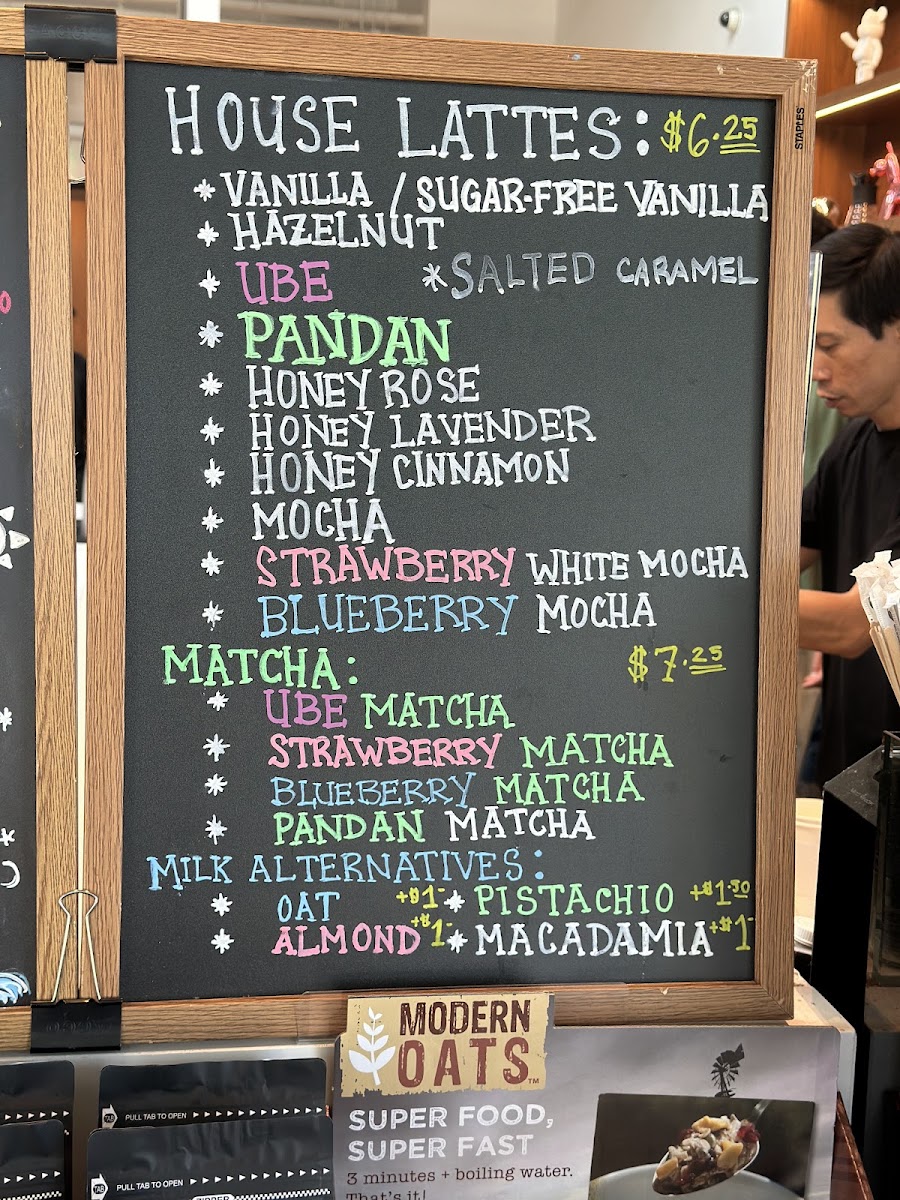 HOUSE LATTES: $6.25
* VANILLA / SUGAR-FREE VANILLA
* HAZELNUT
* UBE * SALTED CARAMEL
* PANDAN
* HONEY ROSE
* HONEY LAVENDER
* HONEY CINNAMON
* MOCHA
* STRAWBERRY WHITE MOCHA
* BLUEBERRY MOCHA
MATCHA: $7.25
* UBE MATCHA
* STRAWBERRY MATCHA
* BLUEBERRY MATCHA
* PANDAN MATCHA
MILK ALTERNATIVES:
* OAT +$1- * PISTACHIO +$1.50
* ALMOND +$1- * MACADAMIA +$1
STAPLES
MODERN
OATS™
SUPER FOOD,
SUPER FAST
3 minutes + boiling water.
That's it!
TAB PULL TAB TO OPEN
TAB PULL TAB TO OPEN
ZIPPER